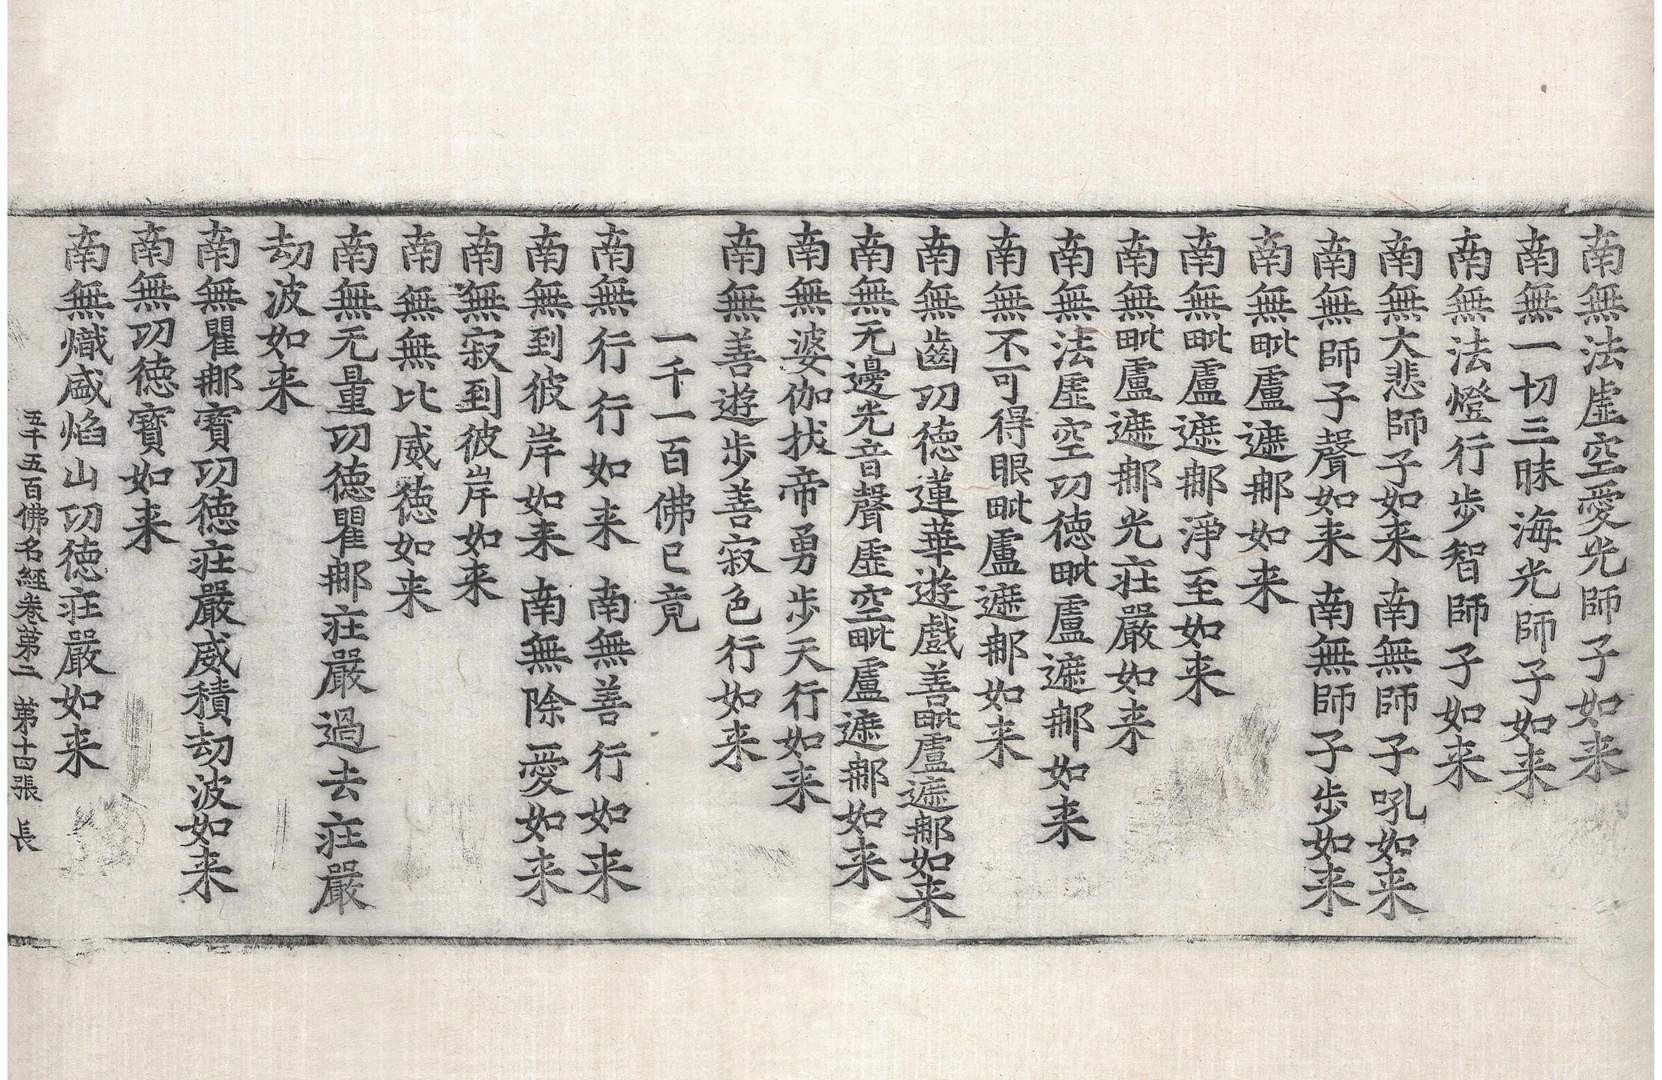 南無法虛空愛光師子如来
南無一切三昧海光師子如来
南無法燈行步智師子如来
南無大悲師子如来 南無師子吼如来
南無師子聲如来 南無師子步如来
南無毗盧遮那如来
南無毗盧遮那淨至如来
南無毗盧遮那光莊嚴如来
南無法虛空功德毗盧遮那如来
南無不可得眼毗盧遮那如来
南無齒功德蓮華遊戲善毗盧遮那如来
南無无邊光音聲虛空毗盧遮那如来
南無婆伽拔帝勇步天行如来
南無善遊步善寂色行如来
一千一百佛已竟
南無行行如来 南無善行如来
南無到彼岸如来 南無除愛如来
南無寂到彼岸如来
南無無比威德如来
南無无量功德瞿那莊嚴過去莊嚴
劫波如来
南無瞿那寶功德莊嚴威積劫波如来
南無功德寶如来
南無熾盛焰山功德莊嚴如来
五千五百佛名經卷第二 第十四張 長